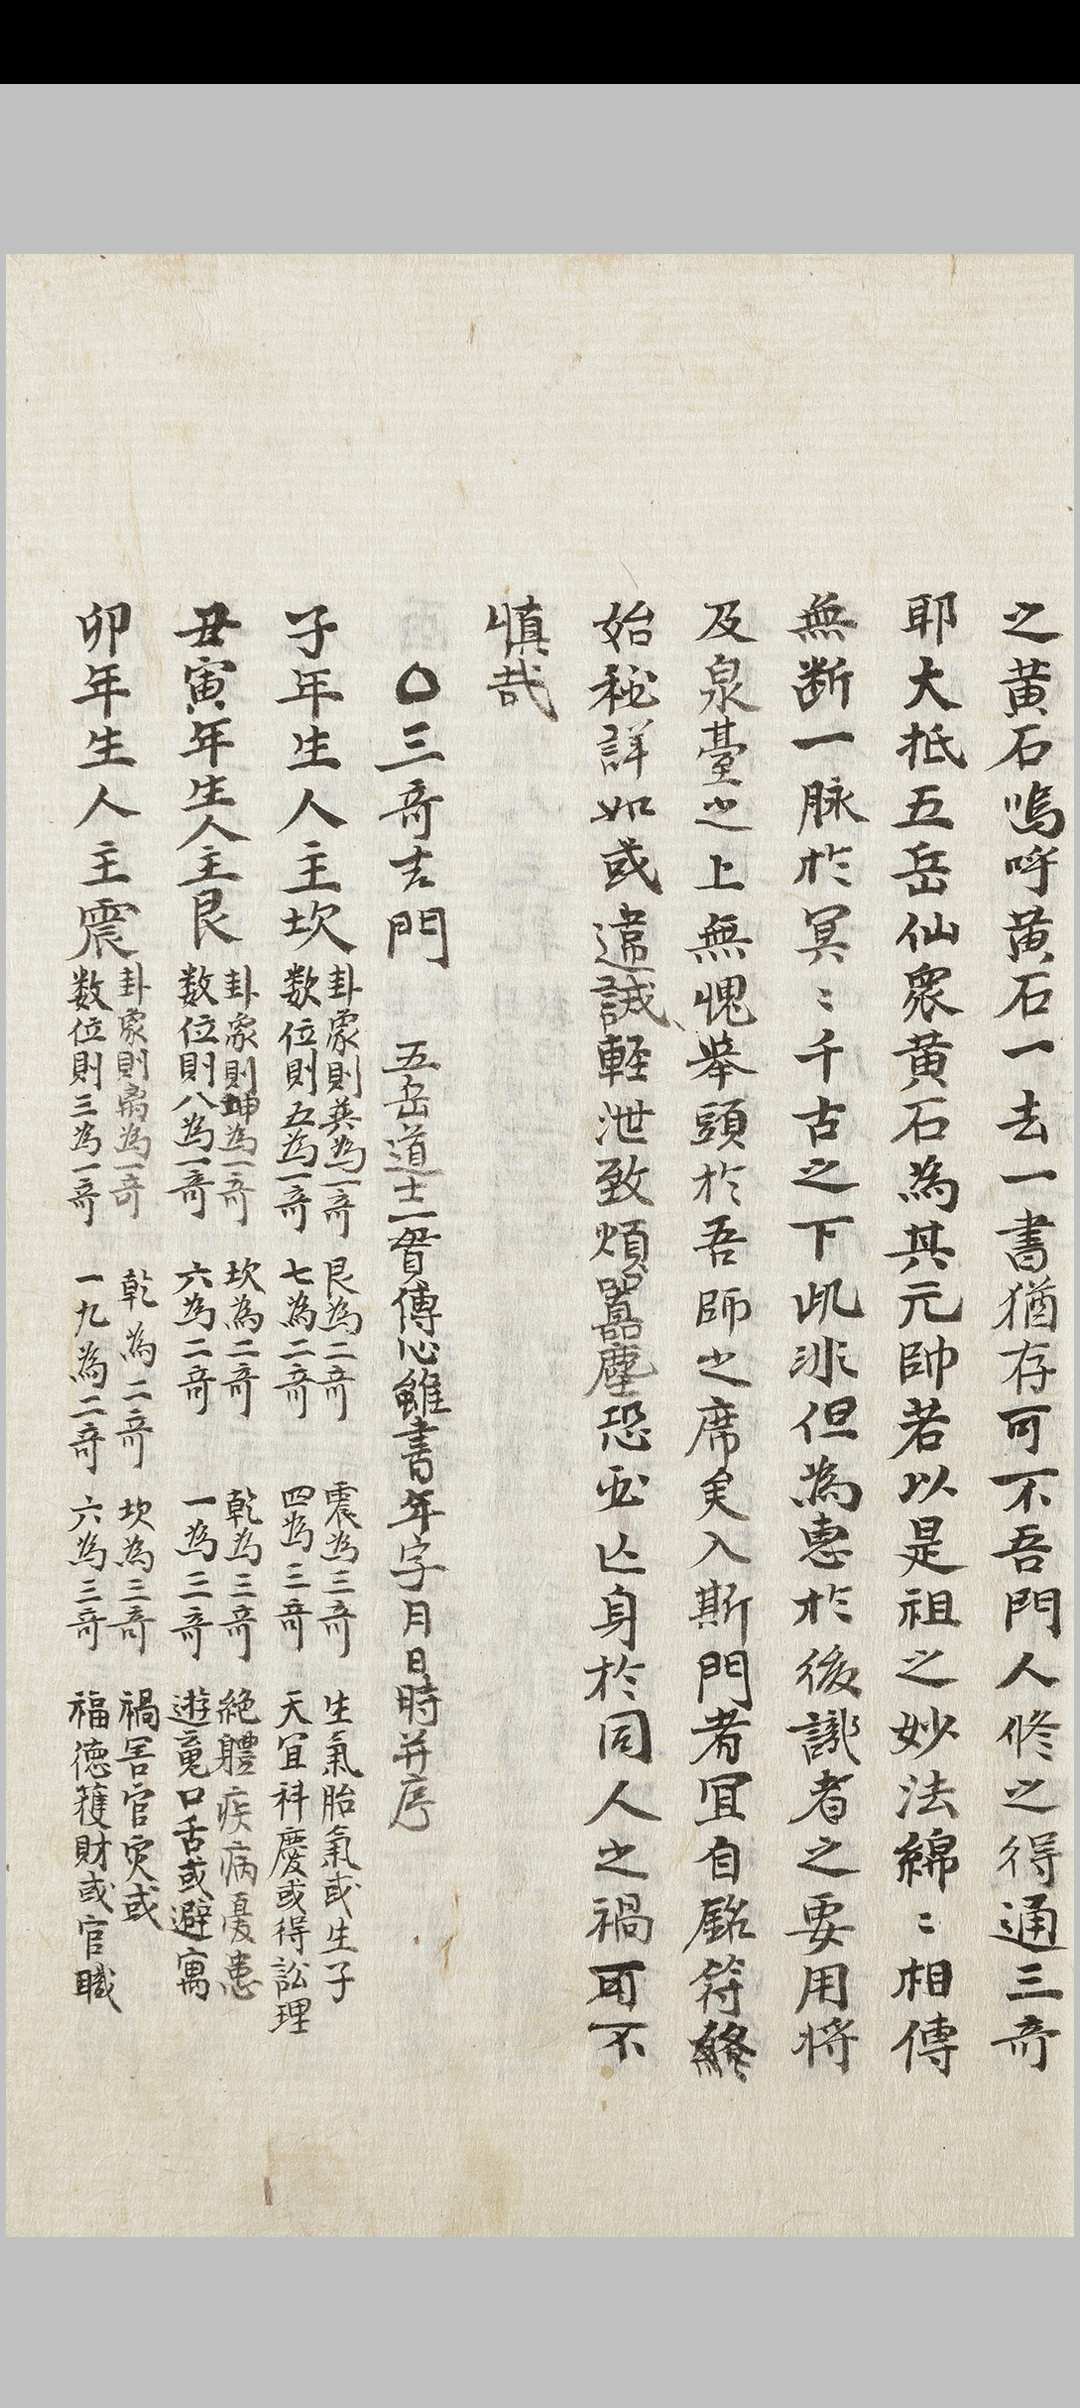 之黃石嗚呼黃石一去一書猶存可不吾門人修之得通三奇
耶大抵五岳仙衆黃石為其元帥若以是祖之妙法綿〻相傳
無断一脉於冥〻千古之下此非但為惠於後識者之要用将
及泉臺之上無愧擧頭於吾師之席矣入斯門者冝自銘符終
始秘詳如或違誡軽泄致煩囂塵恐必亡身於同人之禍可不
慎哉
〇三奇吉門 五岳道士一贊傳心雖書年字月日時并序
子年生人主坎
卦象則巽為一奇 艮為二奇 震為三奇 生氣胎氣或生子
数位則五為一奇 七為二奇 四為三奇 天冝科慶或得訟理
丑寅年生人主艮
卦象則坤為一奇 坎為二奇 乾為三奇 絶體疾病憂患
数位則八為一奇 六為二奇 一為三奇 遊竟口舌或避寓
卯年生人主震
卦象則为一奇 乾為二奇 坎為三奇 禍害官灾或
数位則三為一奇 一九為二奇 六為三奇 福徳獲財或官職